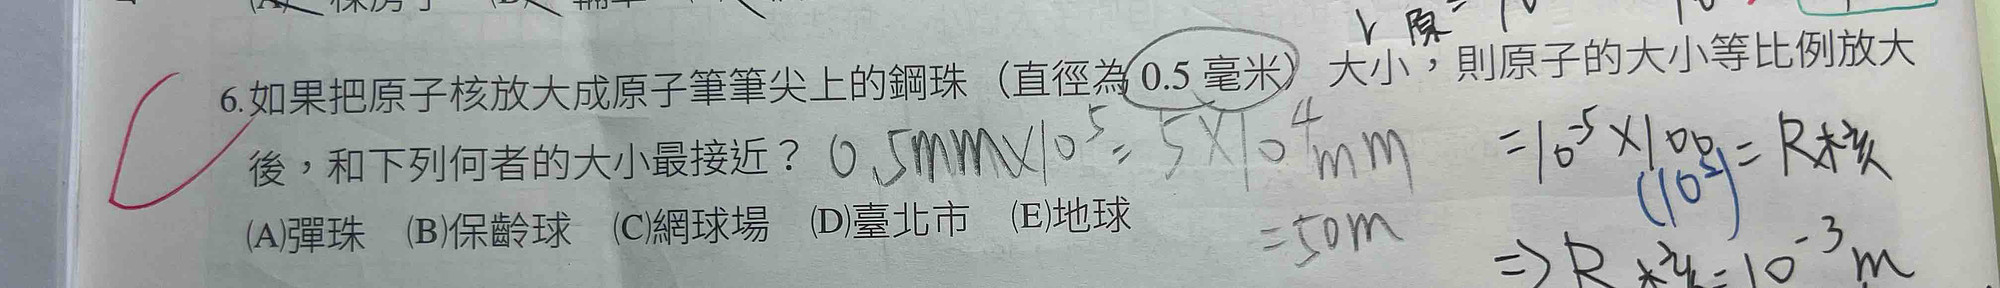 r原=10
6.如果把原子核放大成原子筆筆尖上的鋼珠（直徑為0.5毫米）大小，則原子的大小等比例放大
後，和下列何者的大小最接近？ 0.5mm×10⁵=5×10⁴mm
=10⁻⁵×100=R核
(10²)
(A)彈珠 (B)保齡球 (C)網球場 (D)臺北市 (E)地球
=50m
⇒R核=10⁻³m